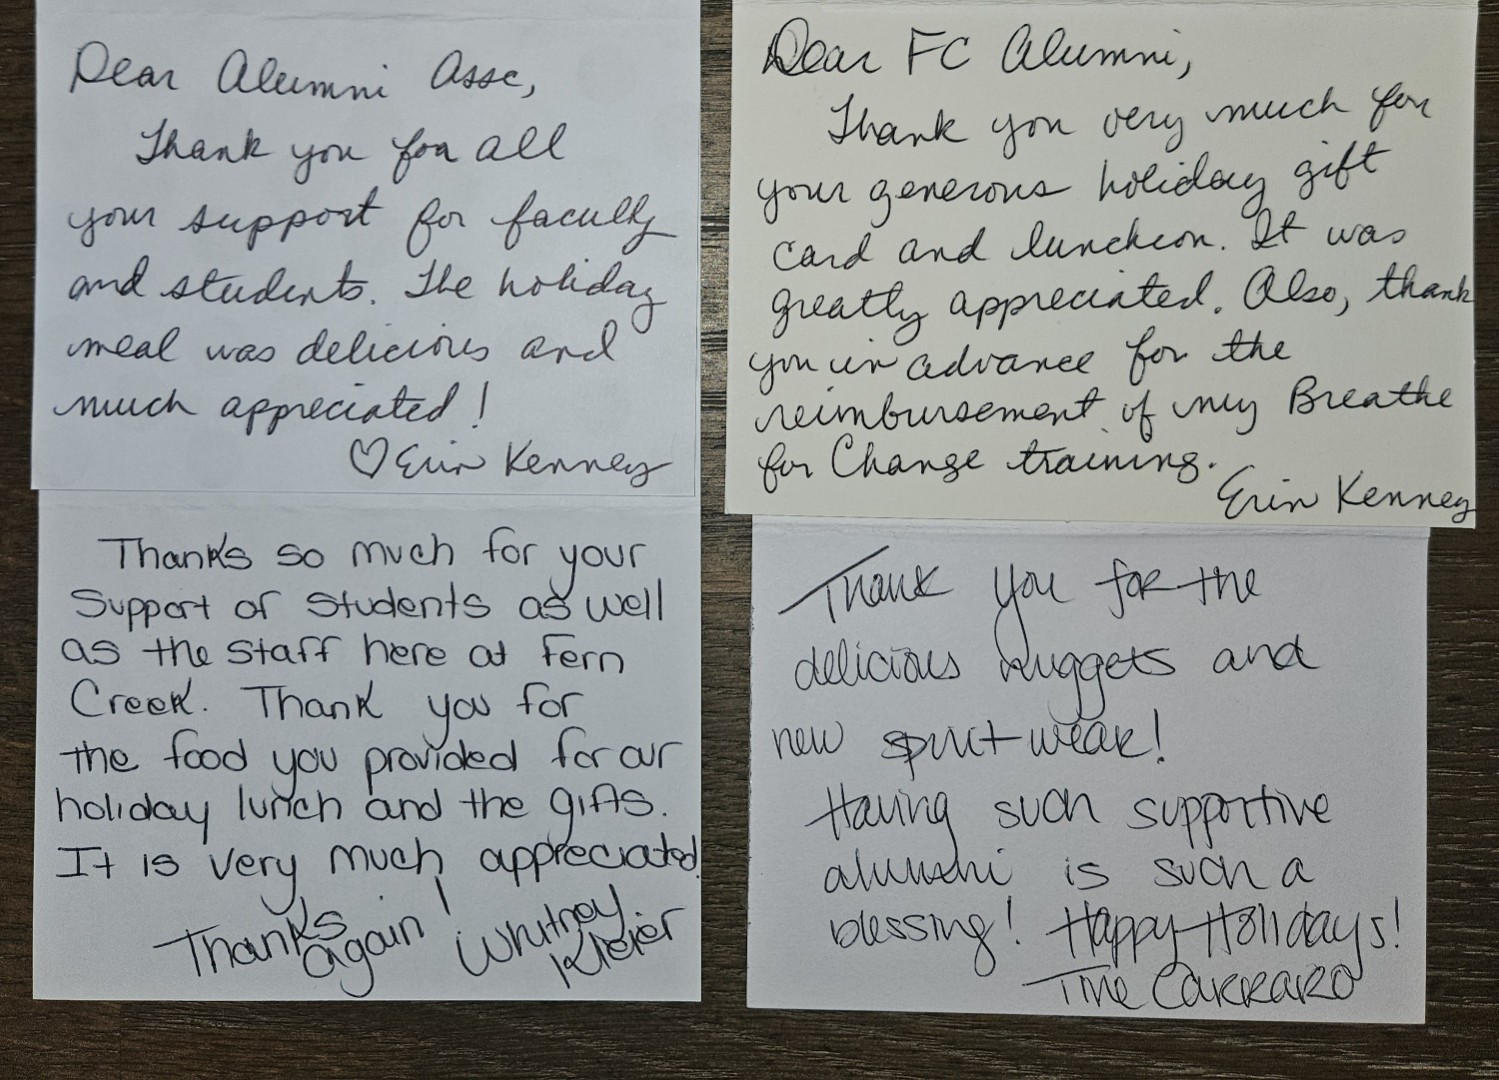 Dear Alumni Assc,
Thank you for all
your support for faculty
and students. The holiday
meal was delicious and
much appreciated!
♡ Erin Kenney
Dear FC Alumni,
Thank you very much for
your generous holiday gift
card and luncheon. It was
greatly appreciated. Also, thank
you in advance for the
reimbursement of my Breathe
for Change training.
Erin Kenney
Thanks so much for your
Support of Students as well
as the staff here at Fern
Creek. Thank you for
the food you provided for our
holiday lunch and the gifts.
It is very much appreciated.
Thanks again! Whitney
Kleier
Thank you for the
delicious nuggets and
new spirit wear!
Having such supportive
alumni is such a
blessing! Happy Holidays!
Carraro